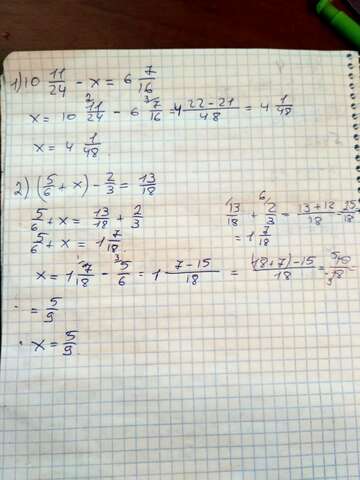 1) 10 11/24 - x = 6 7/16
x = 10 11/24 - 6 7/16 = 4 22-21/48 = 4 1/48
x = 4 1/48.
2) (5/6 + x) - 2/3 = 13/18
5/6 + x = 13/18 + 2/3
13/18 + 2/3 = 13+12/18 = 25/18
= 1 7/18
5/6 + x = 1 7/18.
x = 1 7/18 - 5/6 = 1 7-15/18 = (18+7)-15/18 = 10/18
= 5/9
x = 5/9.